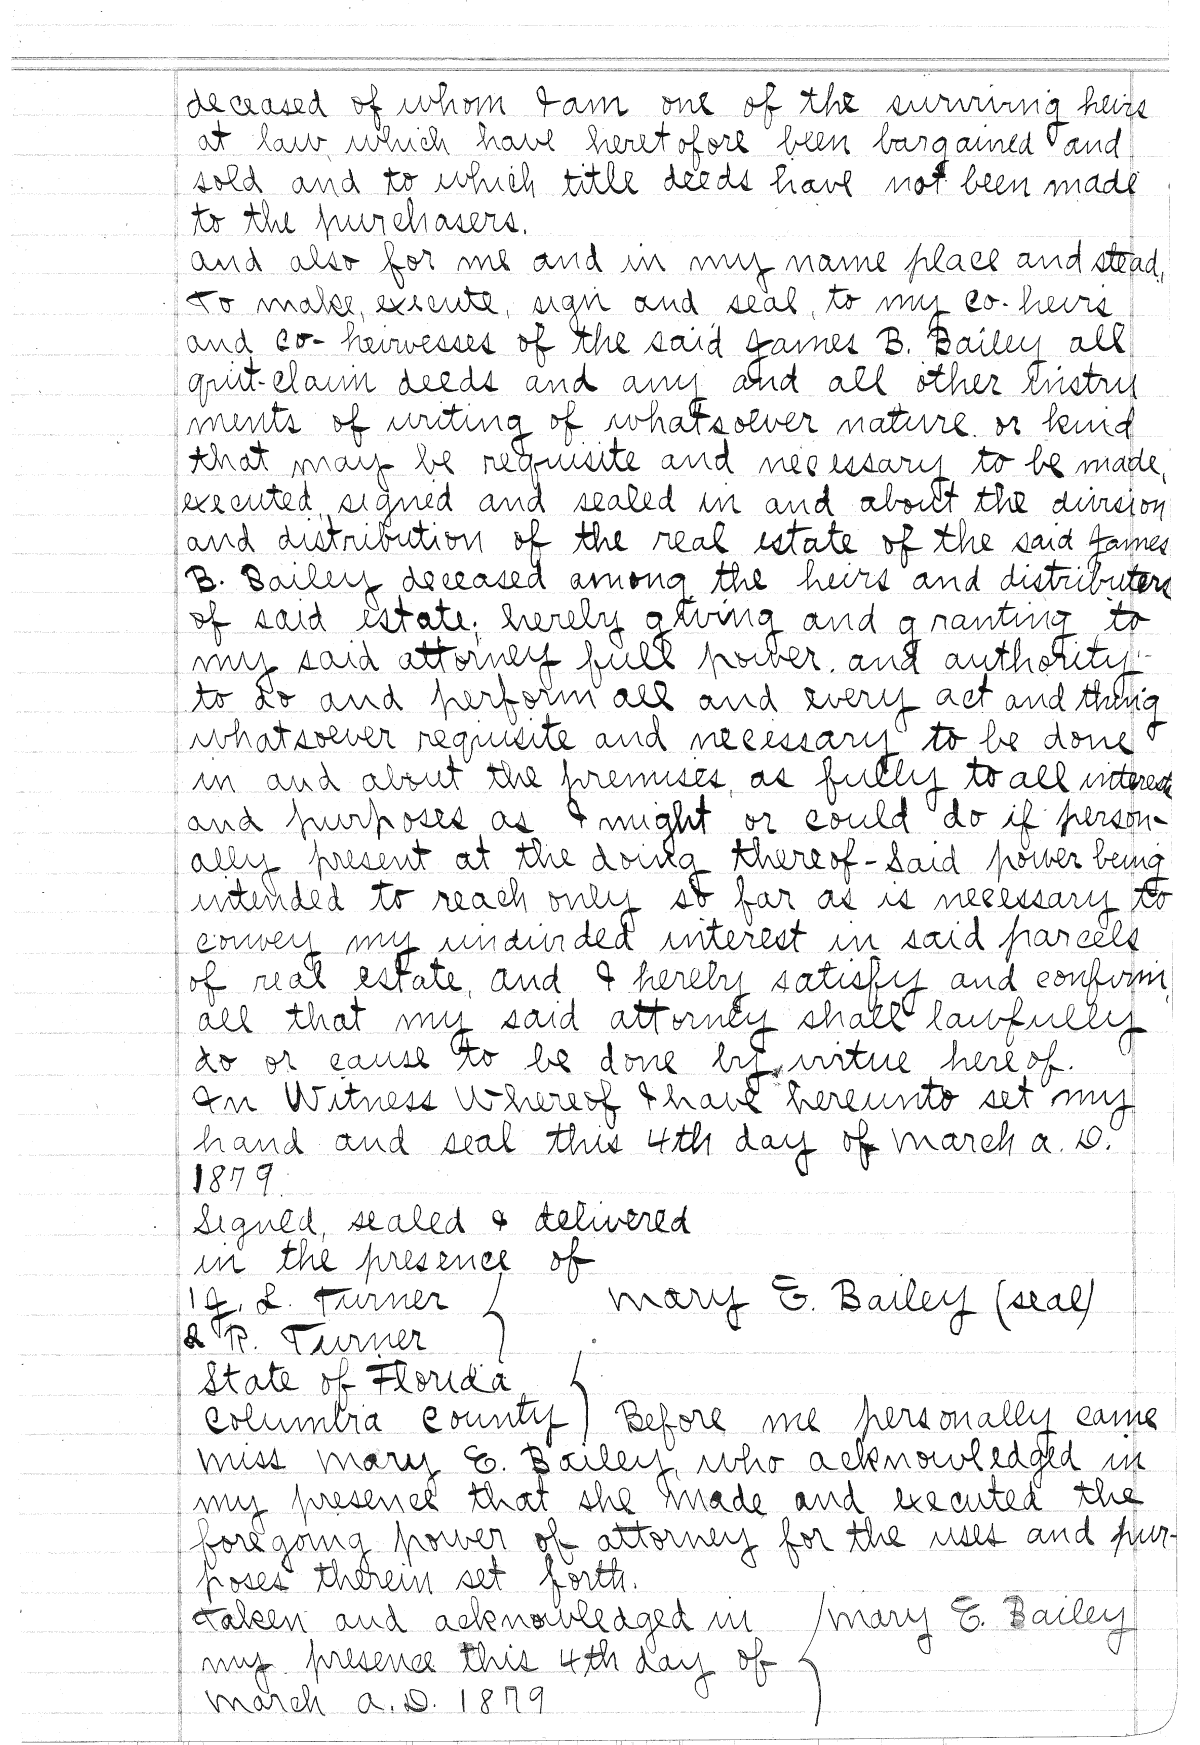 deceased of whom I am one of the surviving heirs
at law, which have heretofore been bargained and
sold and to which title deeds have not been made
to the purchasers.
and also for me and in my name place and stead,
to make, execute, sign and seal, to my co-heirs
and co-heiresses of the said James B. Bailey all
quit-claim deeds and any and all other instru
ments of writing of whatsoever nature or kind
that may be requisite and necessary to be made,
executed, signed and sealed in and about the division
and distribution of the real estate of the said James
B. Bailey deceased among the heirs and distributers
of said estate; hereby giving and granting to
my said attorney full power and authority
to do and perform all and every act and thing
whatsoever requisite and necessary to be done
in and about the premises, as fully to all interests
and purposes as I might or could do if person-
ally present at the doing thereof - Said power being
intended to reach only so far as is necessary to
convey my undivided interest in said parcels
of real estate, and I hereby satisfy and confirm,
all that my said attorney shall lawfully
do or cause to be done by virtue hereof.
In Witness Whereof I have hereunto set my
hand and seal this 4th day of March A. D.
1879.
Signed, sealed & delivered
in the presence of
L. Turner Mary E. Bailey (seal)
R. Turner
State of Florida
Columbia County) Before me personally came
Miss Mary E. Bailey, who acknowledged in
my presence that she made and executed the
foregoing power of attorney for the uses and pur-
poses therein set forth.
Taken and acknowledged in Mary E. Bailey
my presence this 4th day of
March A. D. 1879